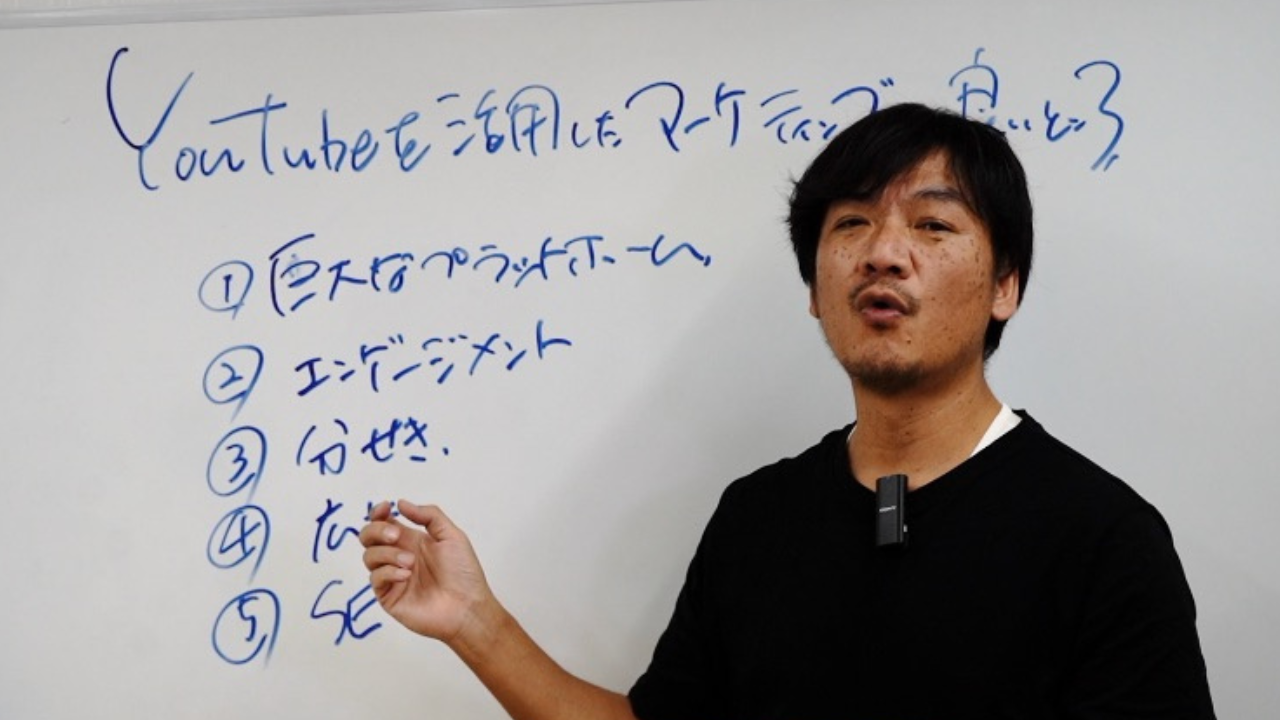 YouTubeを活用したマーケティング 良いところ
① 巨大なプラットホーム
② エンゲージメント
③ 分せき.
④ 広
⑤ SE